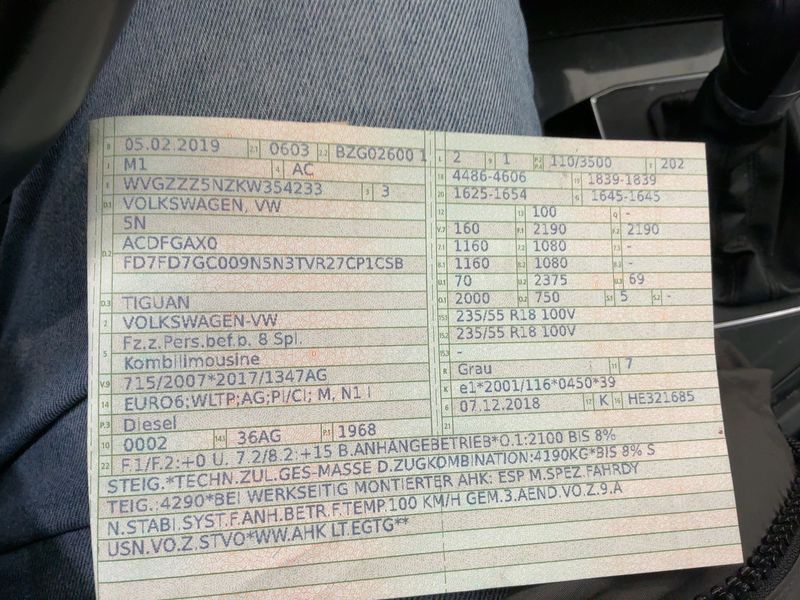 B 05.02.2019 2.1 0603 2.2 BZG02600 1
J M1 4 AC
E WVGZZZ5NZKW354233 3 3
D.1 VOLKSWAGEN, VW
5N
D.2 ACDFGAX0
FD7FD7GC009N5N3TVR27CP1CSB
D.3 TIGUAN
2 VOLKSWAGEN-VW
5 Fz.z.Pers.bef.b. 8 Spl.
Kombilimousine
V.9 715/2007*2017/1347AG
14 EURO6;WLTP;AG;PI/CI; M, N1 I
P.3 Diesel
10 0002 14.1 36AG P.1 1968
L 2 9 1 P.2 P.4 110/3500 T 202
18 4486-4606 19 1839-1839
20 1625-1654 G 1645-1645
12 13 100 Q -
V.7 160 F.1 2190 F.2 2190
7.1 1160 7.2 1080 7.3 -
8.1 1160 8.2 1080 8.3 -
U.1 70 U.2 2375 U.3 69
O.1 2000 O.2 750 S.1 5 S.2 -
15.1 235/55 R18 100V
15.2 235/55 R18 100V
15.3 -
R Grau 11 7
K e1*2001/116*0450*39
6 07.12.2018 17 K 16 HE321685
21
22 F.1/F.2:+0 U. 7.2/8.2:+15 B.ANHÄNGEBETRIEB*O.1:2100 BIS 8%
STEIG.*TECHN.ZUL.GES-MASSE D.ZUGKOMBINATION:4190KG*BIS 8% S
TEIG.:4290*BEI WERKSEITIG MONTIERTER AHK: ESP M.SPEZ.FAHRDY
N.STABI.SYST.F.ANH.BETR.F.TEMP.100 KM/H GEM.3.AEND.VO.Z.9.A
USN.VO.Z.STVO*WW.AHK LT.EGTG**